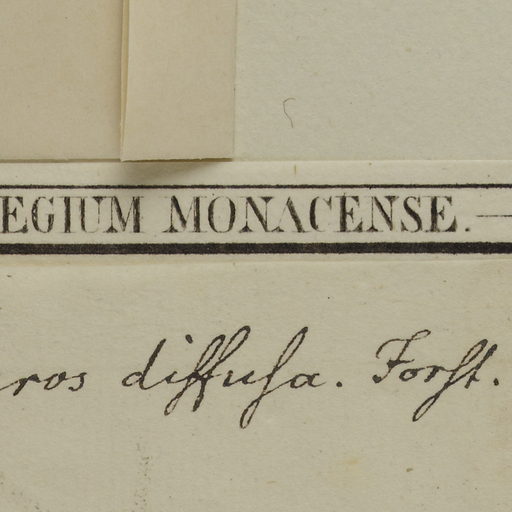 EGIUM MONACENSE. —
ros diffusa. Forst.